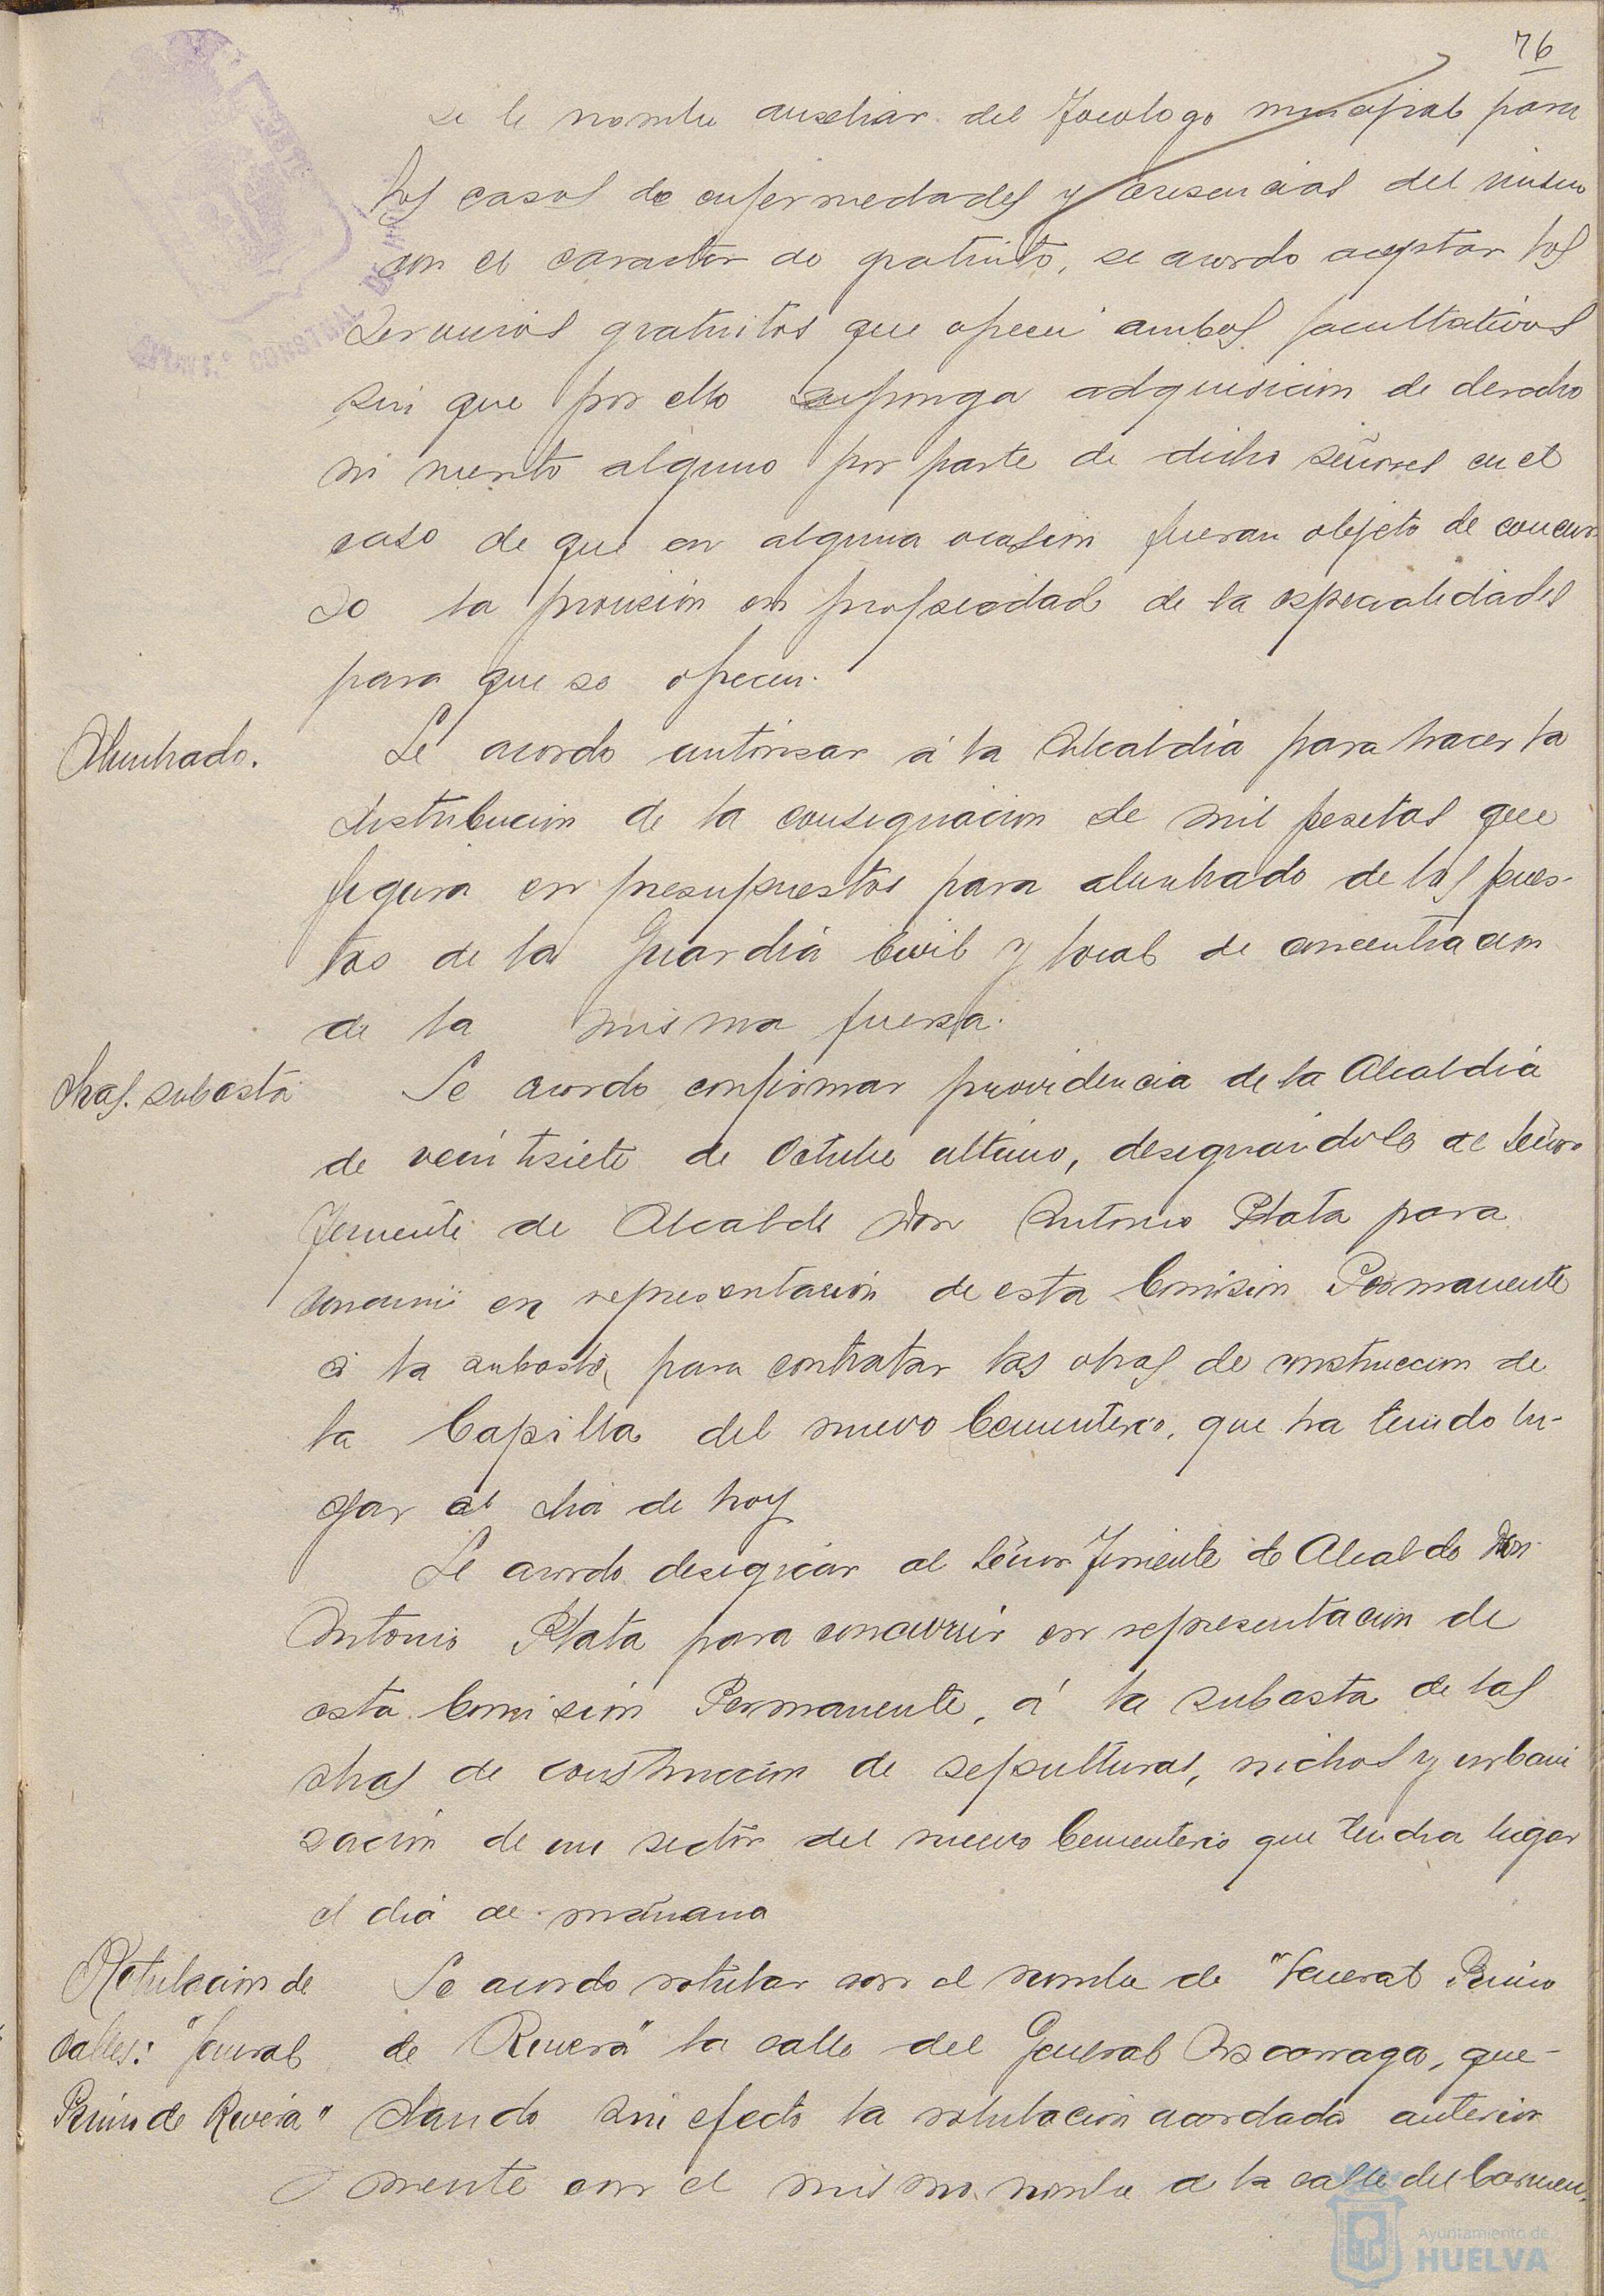 76
se le nombre auxiliar del Tocologo municipal para
los casos de enfermedades y ausencias del mismo
con el caracter de gratuito, se acordo aceptar los
servicios gratuitos que ofrecen ambos facultativos
sin que por ello suponga adquisicion de derecho
ni merito alguno por parte de dicho señores en el
caso de que en alguna ocasion fueran objeto de concur
so la provisión en propiedad de la especialidades
para que se ofrecen.
Alumbrado.
Se acordo autorizar á la Alcaldia para hacer la
distribucion de la consignacion de mil pesetas que
figura en presupuestos para alumbrado de los pues-
tos de la Guardia Civil y local de concentracion
de la misma fuerza.
Obras. subasta
Se acordo confirmar providencia de la Alcaldia
de veintisiete de Octubre ultimo, designandole al Señor
Teniente de Alcalde Don Antonio Plata para
concurrir en representacion de esta Comision Permanente
á la subasta para contratar las obras de construccion de
la Capilla del nuevo Cementerio, que ha tenido lu-
gar el dia de hoy
Se acordo designar al Señor Teniente de Alcalde Don
Antonio Plata para concurrir en representacion de
esta Comisión Permanente, á la subasta de las
obras de construccion de sepulturas, nichos y urbani
zación de un sector del nuevo Cementerio que tendra lugar
el dia de mañana
Rotulacion de
calles: "General
Primo de Rivera"
Se acordo rotular con el nombre de "General Primo
de Rivera" la calle del General Azcarraga, que-
dando sin efecto la rotulacion acordada anterior
mente con el mismo nombre a la calle del Carmen.
Ayuntamiento de
HUELVA